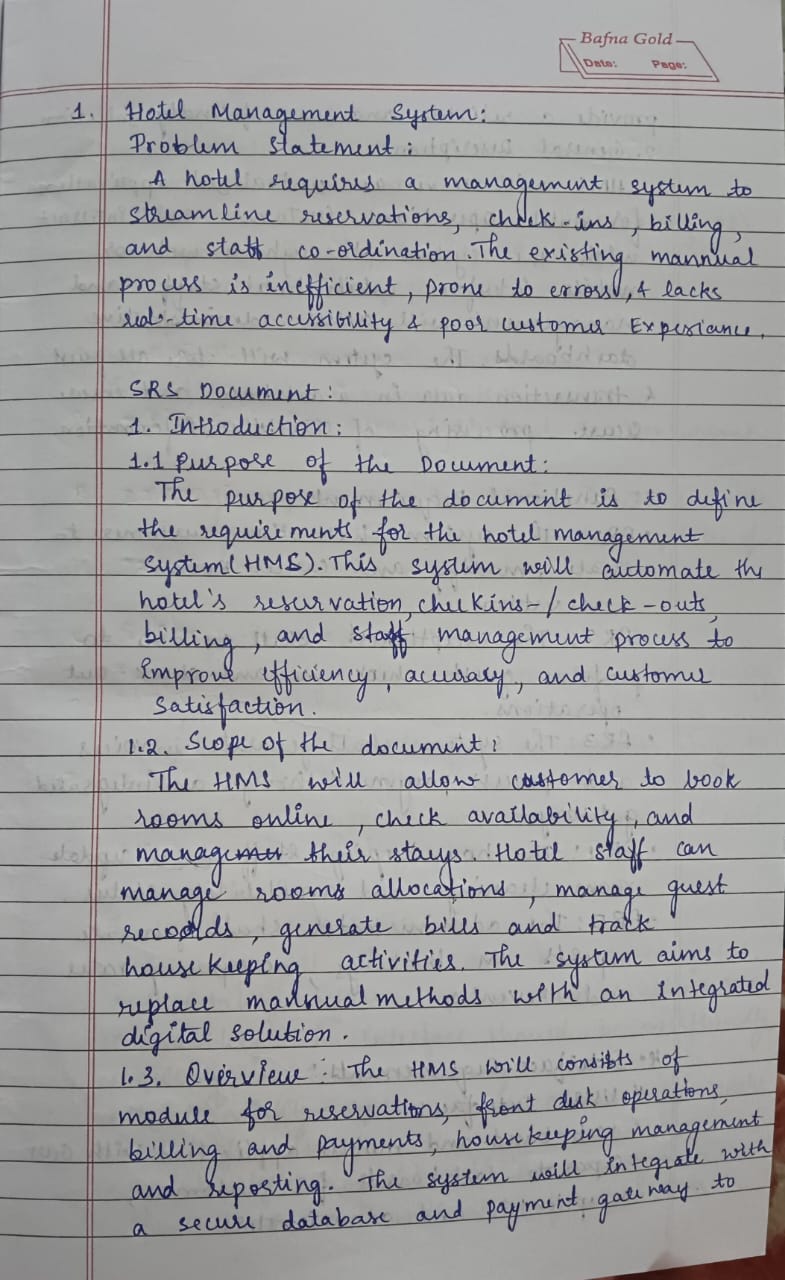 Bafna Gold
Date: Page:
1. Hotel Management System:
Problem statement:
A hotel requires a management system to
streamline reservations, check-ins, billing,
and staff co-ordination. The existing mannual
process is inefficient, prone to errors, & lacks
real-time accessibility & poor customer Experiance.
SRS Document:
1. Introduction:
1.1 Purpose of the Document:
The purpose of the document is to define
the requirements for the hotel management
System(HMS). This system will automate the
hotel's reservation, checkins-/check-outs,
billing, and staff management process to
improve efficiency, accuracy, and customer
Satisfaction.
1.2. Scope of the document:
The HMS will allow customer to book
rooms online, check availability, and
manage their stays. Hotel staff can
manage rooms allocations, manage guest
records, generate bills and track
housekeeping activities. The system aims to
replace mannual methods with an integrated
digital solution.
1.3. Overview: The HMS will consists of
module for reservations, front desk operations,
billing and payments, housekeeping management
and reporting. The system will integrate with
a secure database and payment gateway to